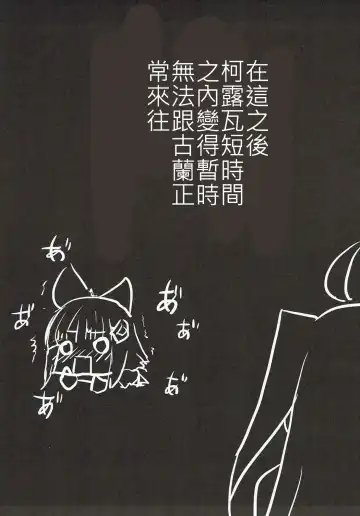 在這之後
柯露瓦短時間
之內變得暫時
無法跟古蘭正
常來往
あ゛
あ゛
あ゛
あ゛
あ゛